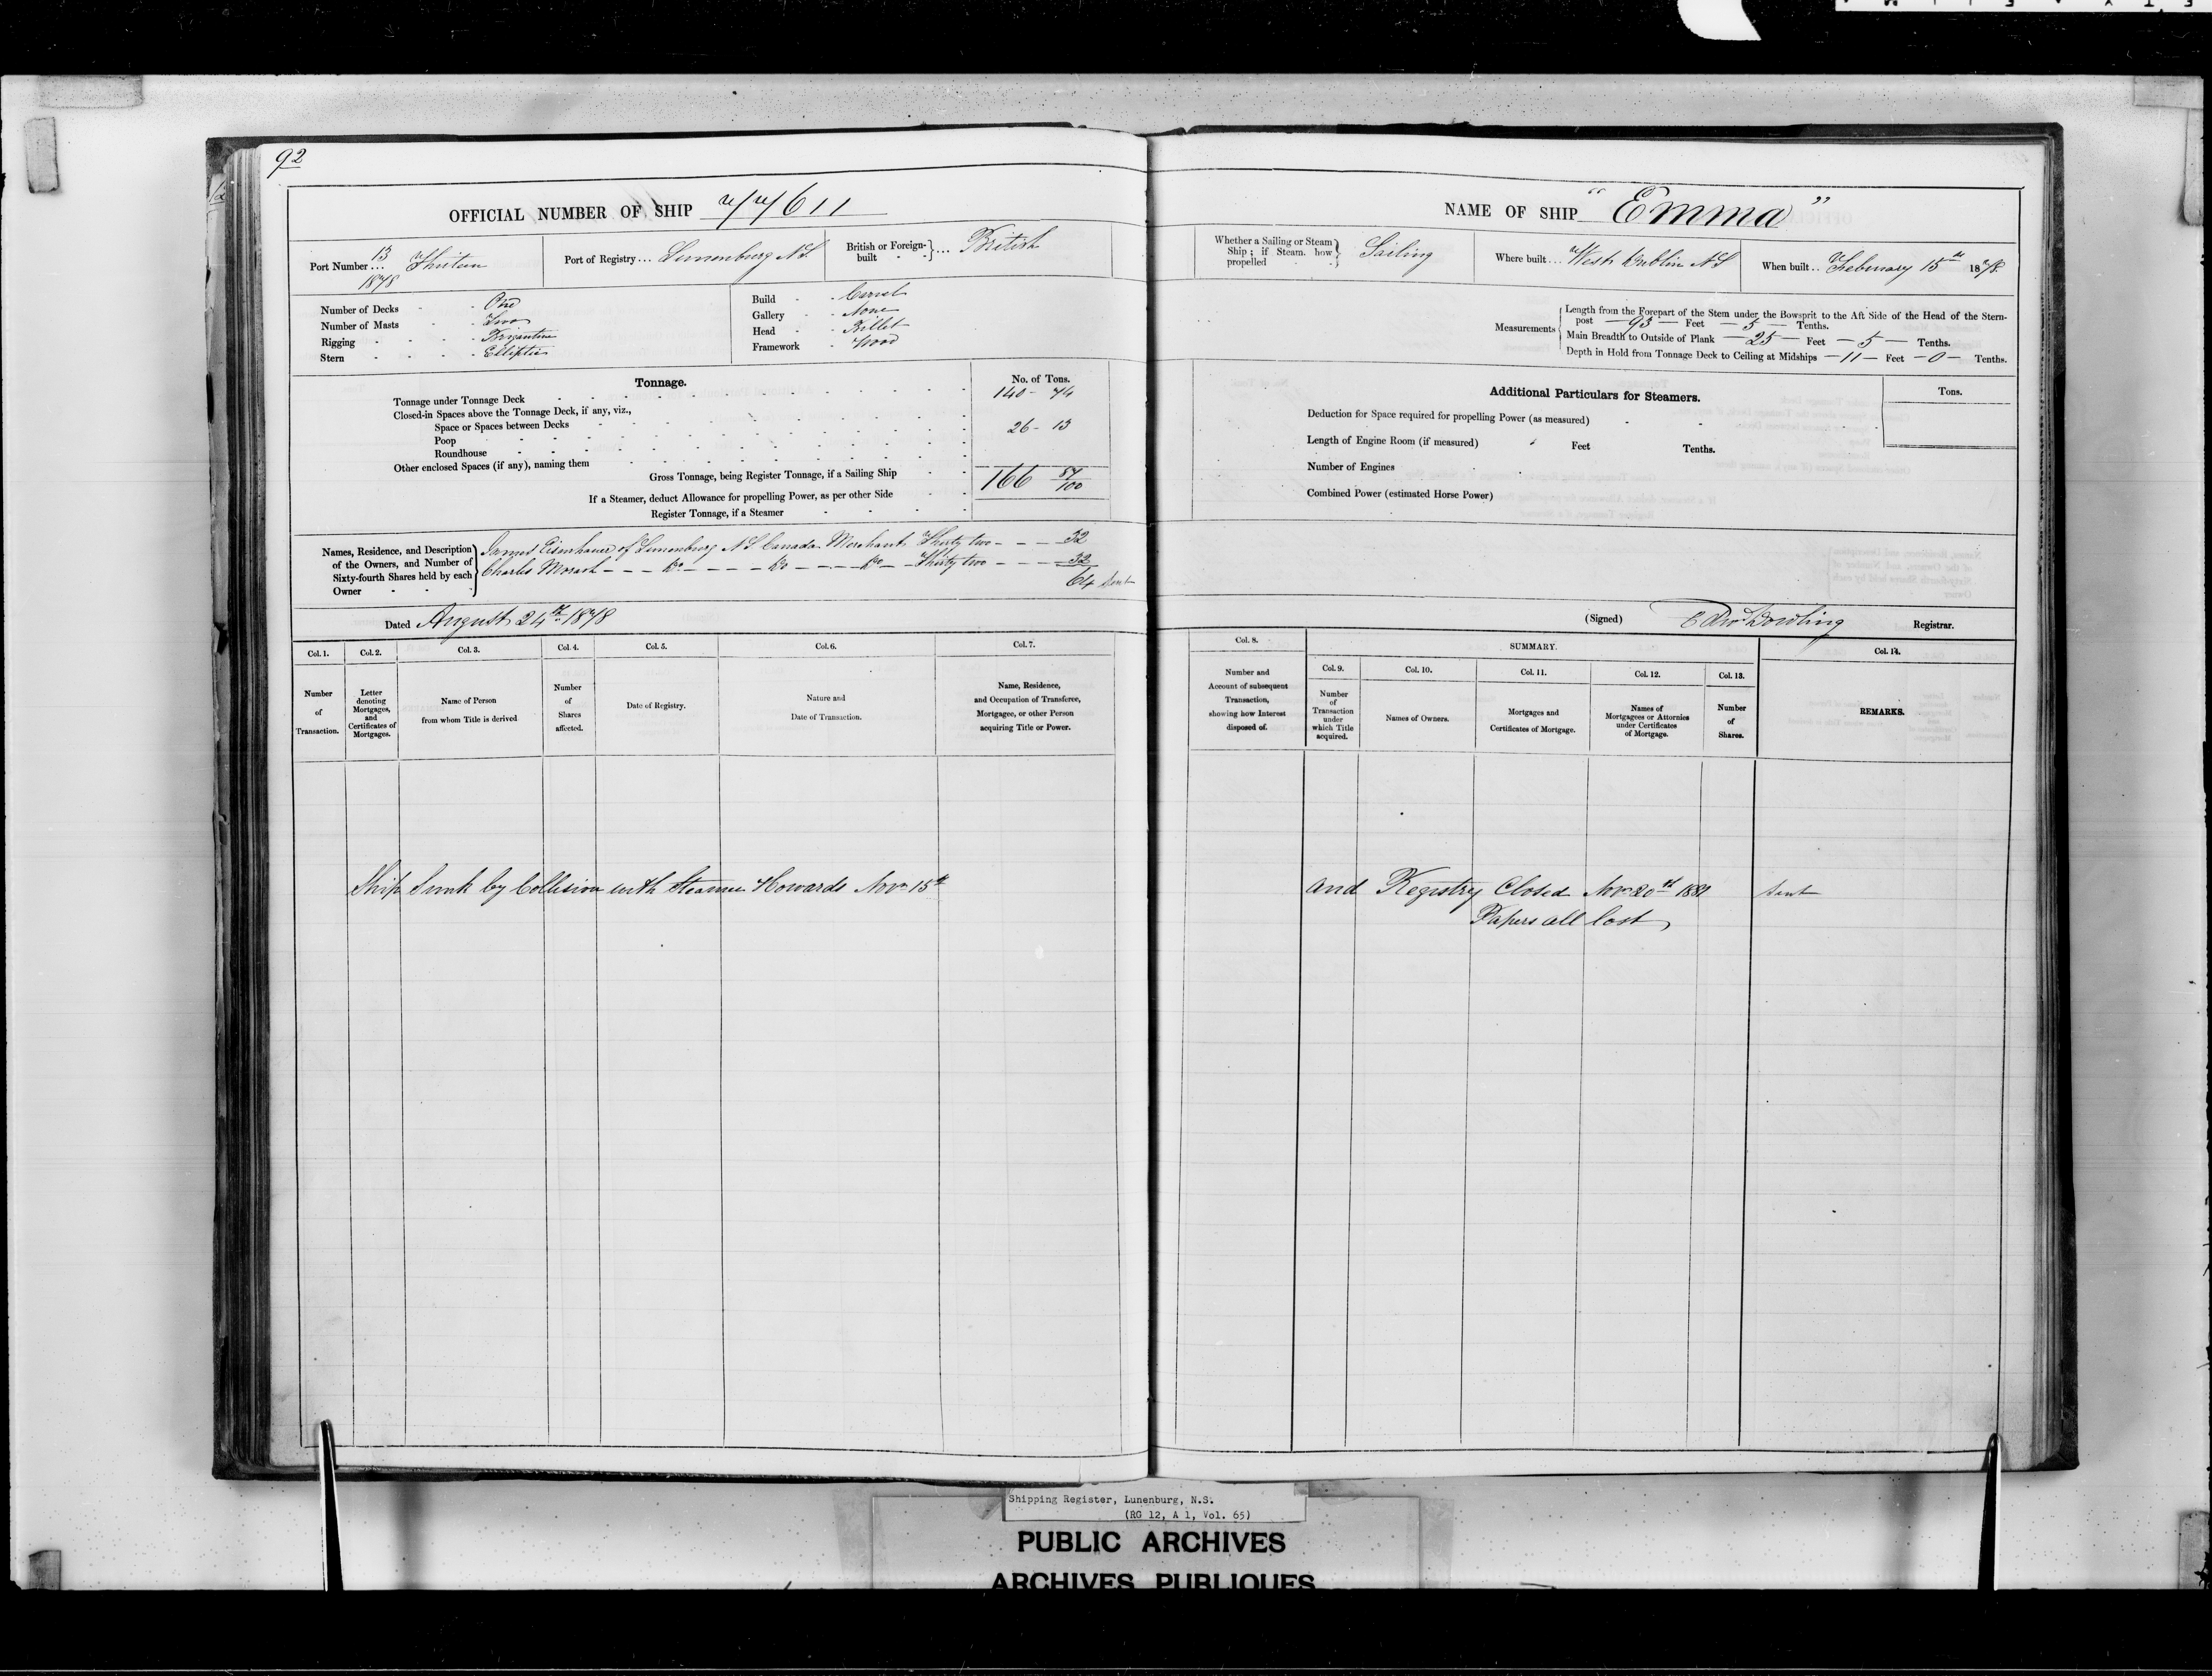 92
OFFICIAL NUMBER OF SHIP 77611
Port Number ... 13 Thirteen
1878
Port of Registry ... Lunenburg N.S.
British or Foreign-built } ... British
Number of Decks - - One
Number of Masts - - Two
Rigging - - - - Brigantine
Stern - - - - Elliptic
Build - - Carvel
Gallery - - None
Head - - Billet
Framework - Wood
Tonnage.
No. of Tons.
Tonnage under Tonnage Deck 140 - 74
Closed-in Spaces above the Tonnage Deck, if any, viz.,
Space or Spaces between Decks 26 - 13
Poop
Roundhouse
Other enclosed Spaces (if any), naming them
Gross Tonnage, being Register Tonnage, if a Sailing Ship 166 87/100
If a Steamer, deduct Allowance for propelling Power, as per other Side
Register Tonnage, if a Steamer
Names, Residence, and Description of the Owners, and Number of Sixty-fourth Shares held by each Owner
James Eisenhauer of Lunenburg N.S. Canada Merchant Thirty two - - - 32
Charles Morash - - Do - - - Do - - - Do - - Thirty two - - - 32
64 Sent
Dated August 24th 1878
Col. 1. Col. 2. Col. 3. Col. 4. Col. 5. Col. 6. Col. 7.
Number of Transaction.
Letter denoting Mortgages, and Certificates of Mortgages.
Name of Person from whom Title is derived
Number of Shares affected.
Date of Registry.
Nature and Date of Transaction.
Name, Residence, and Occupation of Transferee, Mortgagee, or other Person acquiring Title or Power.
Ship Sunk by Collision with Steamer Howards Nov 15th
NAME OF SHIP "Emma"
Whether a Sailing or Steam Ship; if Steam, how propelled } Sailing
Where built ... West Dublin N S
When built .. February 15th 1878
Measurements
Length from the Forepart of the Stem under the Bowsprit to the Aft Side of the Head of the Stern-
post — 93 — Feet — 5 — Tenths.
Main Breadth to Outside of Plank — 25 — Feet — 5 — Tenths.
Depth in Hold from Tonnage Deck to Ceiling at Midships — 11 — Feet — 0 — Tenths.
Additional Particulars for Steamers.
Tons.
Deduction for Space required for propelling Power (as measured)
Length of Engine Room (if measured) Feet Tenths.
Number of Engines
Combined Power (estimated Horse Power)
(Signed) Edw Dowling Registrar.
Col. 8.
SUMMARY.
Col. 9. Col. 10. Col. 11. Col. 12. Col. 13.
Col. 14.
Number and Account of subsequent Transaction, showing how Interest disposed of.
Number of Transaction under which Title acquired.
Names of Owners.
Mortgages and Certificates of Mortgage.
Names of Mortgagees or Attornies under Certificates of Mortgage.
Number of Shares.
REMARKS.
and Registry Closed Nov 20th 1881 Sent
Papers all lost
Shipping Register, Lunenburg, N.S.
(RG 12, A 1, Vol. 65)
PUBLIC ARCHIVES
ARCHIVES PUBLIQUES